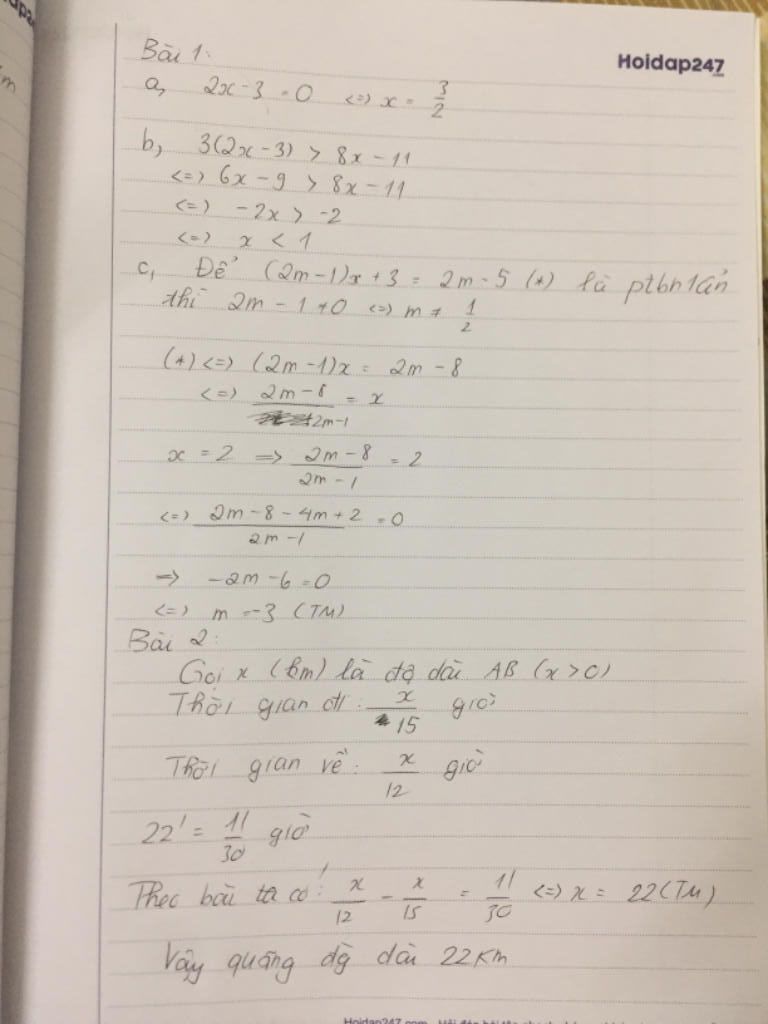 Hoidap247
Bài 1:
a, 2x - 3 = 0 <=> x = 3/2
b, 3(2x - 3) > 8x - 11
<=> 6x - 9 > 8x - 11
<=> -2x > -2
<=> x < 1
c, Để (2m-1)x + 3 = 2m - 5 (*) là ptbn 1 ẩn
thì 2m - 1 ≠ 0 <=> m ≠ 1/2
(*) <=> (2m-1)x = 2m - 8
<=> (2m - 8)/(2m-1) = x
x = 2 => (2m - 8)/(2m - 1) = 2
<=> (2m - 8 - 4m + 2)/(2m - 1) = 0
=> -2m - 6 = 0
<=> m = -3 (TM)
Bài 2:
Gọi x (km) là độ dài AB (x > 0)
Thời gian đi: x/15 giờ
Thời gian về: x/12 giờ
22' = 11/30 giờ
Theo bài ta có: x/12 - x/15 = 11/30 <=> x = 22 (TM)
Vậy quãng đg dài 22 km